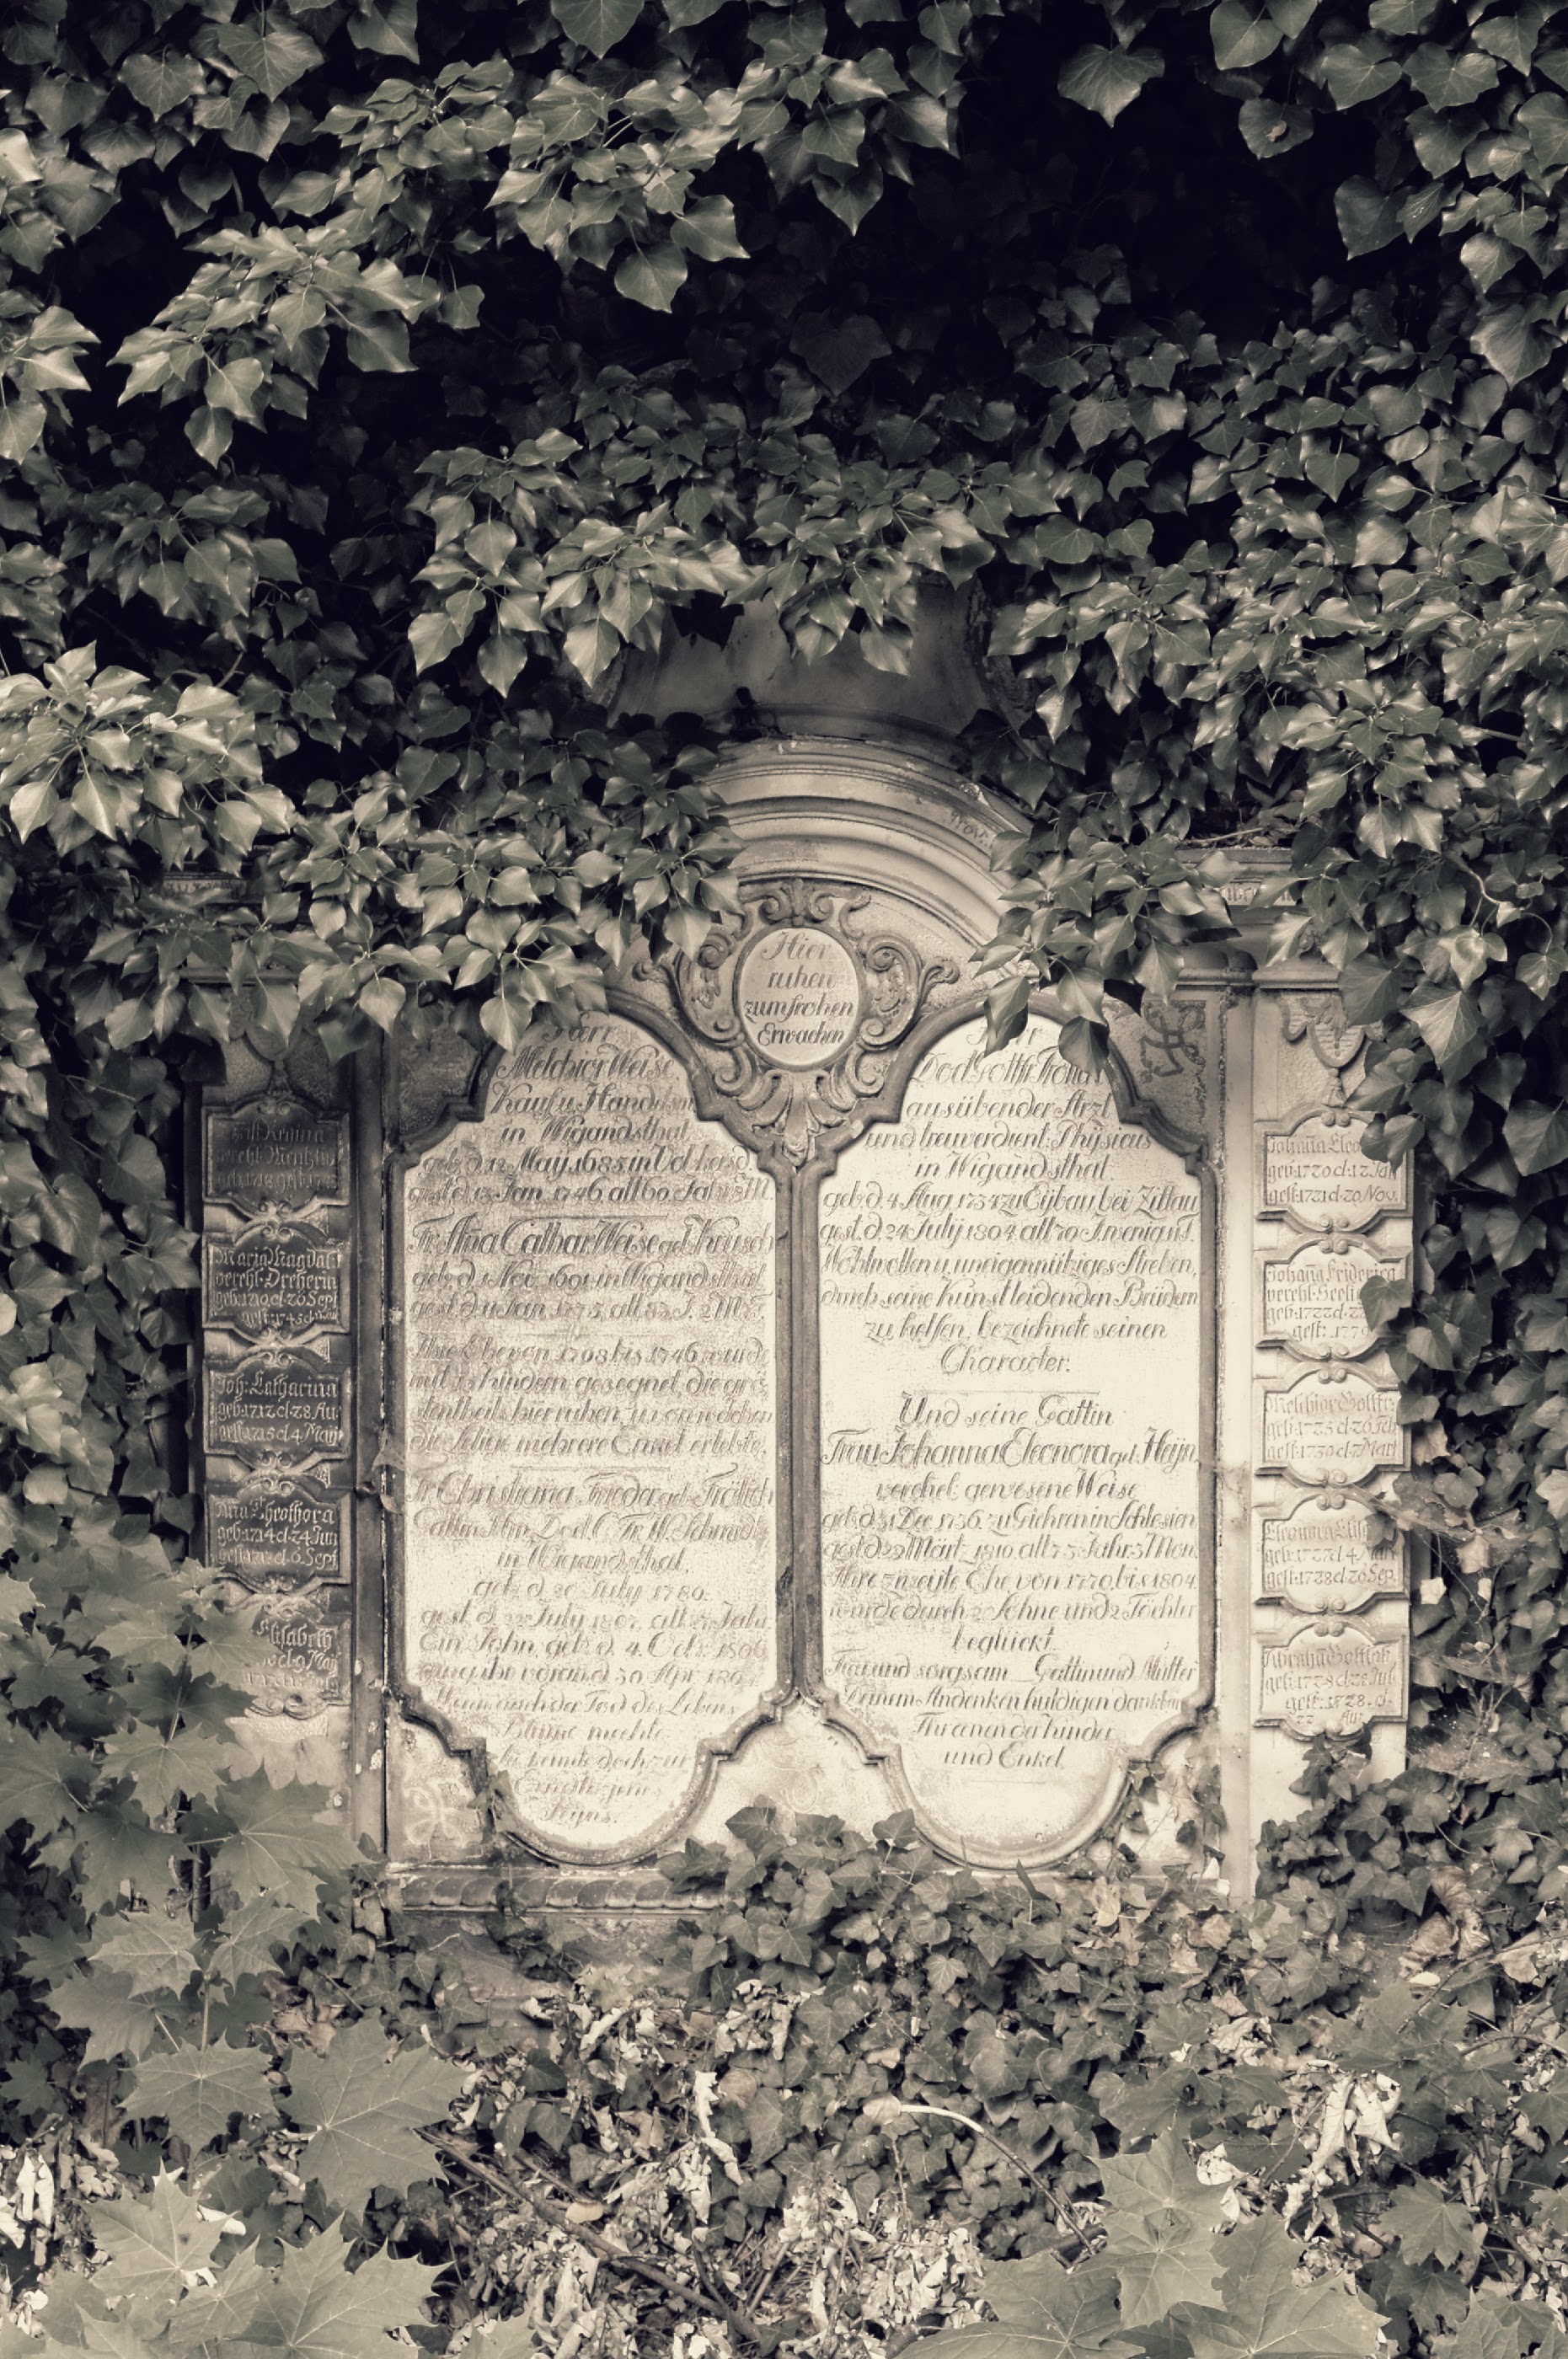 Hier
ruhen
zum frohen
Erwachen
Herr
Melchior Weise
Kauf u. Handelsm
in Wigandsthal
geb. d. 12 May 1685 in
gest. d. 13 Jan. 1746 alt 60. Jahr 8 M.
Fr. Aña Cathar. Weise geb.
geb. d. 1 Nov. 1691 in Wigandsthal
gest. d. 11 Jan. 1775, alt 83 J. 2 M.
Ihre Ehe von 1708 bis 1746 wurde
mit 13 Kindern gesegnet, die grö-
stentheils hier ruhen, u. von welchen
die Selige mehrere Enkel erlebte.
Fr. Christiana Frieder. geb. Frölich
Gattin Hrn. Schmidt
in Wigandsthal.
geb. d. 20 July 1780.
gest. d. 22 July 1807. alt 27 Jahr
Ein Sohn, geb. d. 4. Oct. 1806
ging ihr voran d. 30 Apr. 180
Wenn auch der Tod des Lebens
Blume
doch zur
jenes
Seyns.
Herr
ausübender Arzt
und treuverdient. Physicus
in Wigandsthal.
geb. d. 4 Aug. 1734 zu Eybau, bei Zittau
gest. d. 24 July 1804. alt 70 J. wenig. 11 T.
Wohlwollen u. uneigennütziges Streben,
durch seine Kunst leidenden Brüdern
zu helfen, bezeichnete seinen
Character.
Und seine Gattin
Frau Johanna Eleonora geb. Heyn
verehel. gewesene Weise
geb. d. 31 Dec. 1736. zu Giehren in Schlesien
gest. d. 29 März 1810. alt 73 Jahr 3 Mon.
Ihre zweite Ehe, von 1770. bis 1804.
wurde durch 2 Söhne und 2 Töchter
beglückt.
Treu und sorgsam Gattin und Mutter
Deinem Andenken huldigen dankbar
Thränen der Kinder
und Enkel.
Regina
Maria Magdal
verehl. Dreherin
geb. 1710 d. 26 Sept
gest. 1745 d.
Joh. Catharina
geb. 1712 d. 28 Au
gest. 1715 d. 4 May
Theothora
geb. 1714 d. 24 Jun
gest. d. 6 Sept
Elisabeth
d. 9 May
Johaña Eleo
geb. 1720 d. 12 Jan
gest. 1721 d. 20 Nov.
Johaña Friderica
verehl. Seeli
geb. 1722 d. 2
gest. 177
Melchior Gottfr
geb. 1725 d. 26 Feb
gest. 1730 d. 7 Mart
Eleonora Elis
geb. 1727 d. 4
gest. 1728 d. 20 Sep.
Abraha Gottlob
geb. 1728 d. Jul
gest. 1728. d.
22 Au